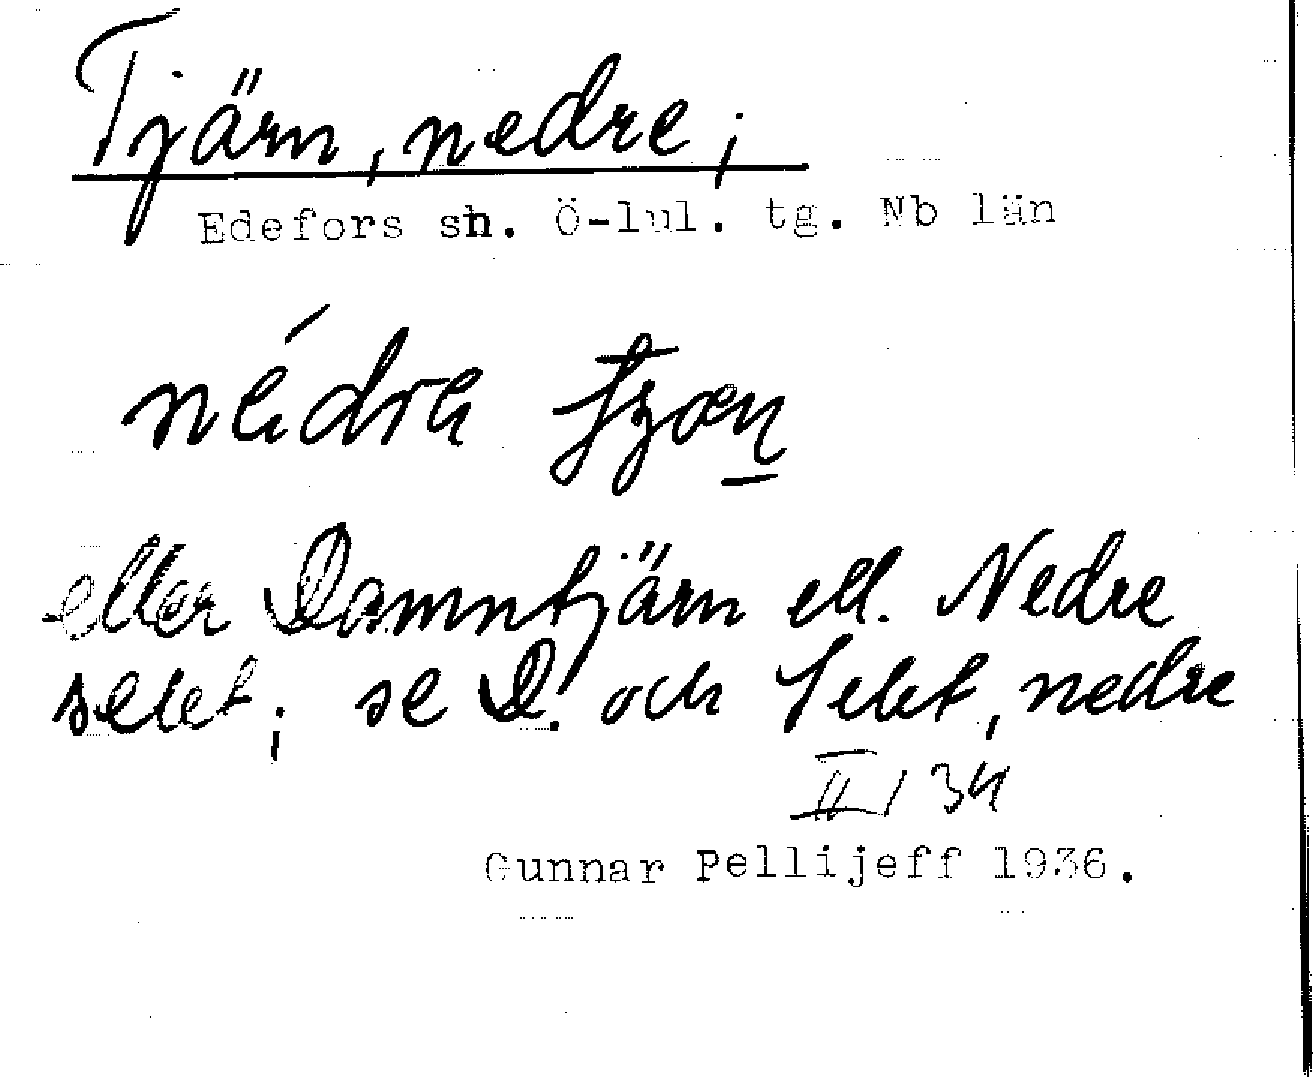 Tjärn, nedre;
Edefors sn. Ö-lul. tg. Nb län
nédra
eller Damntjärn ell. Nedre
selet; se D. och Selet, nedre
II / 34
Gunnar Pellijeff 1936.